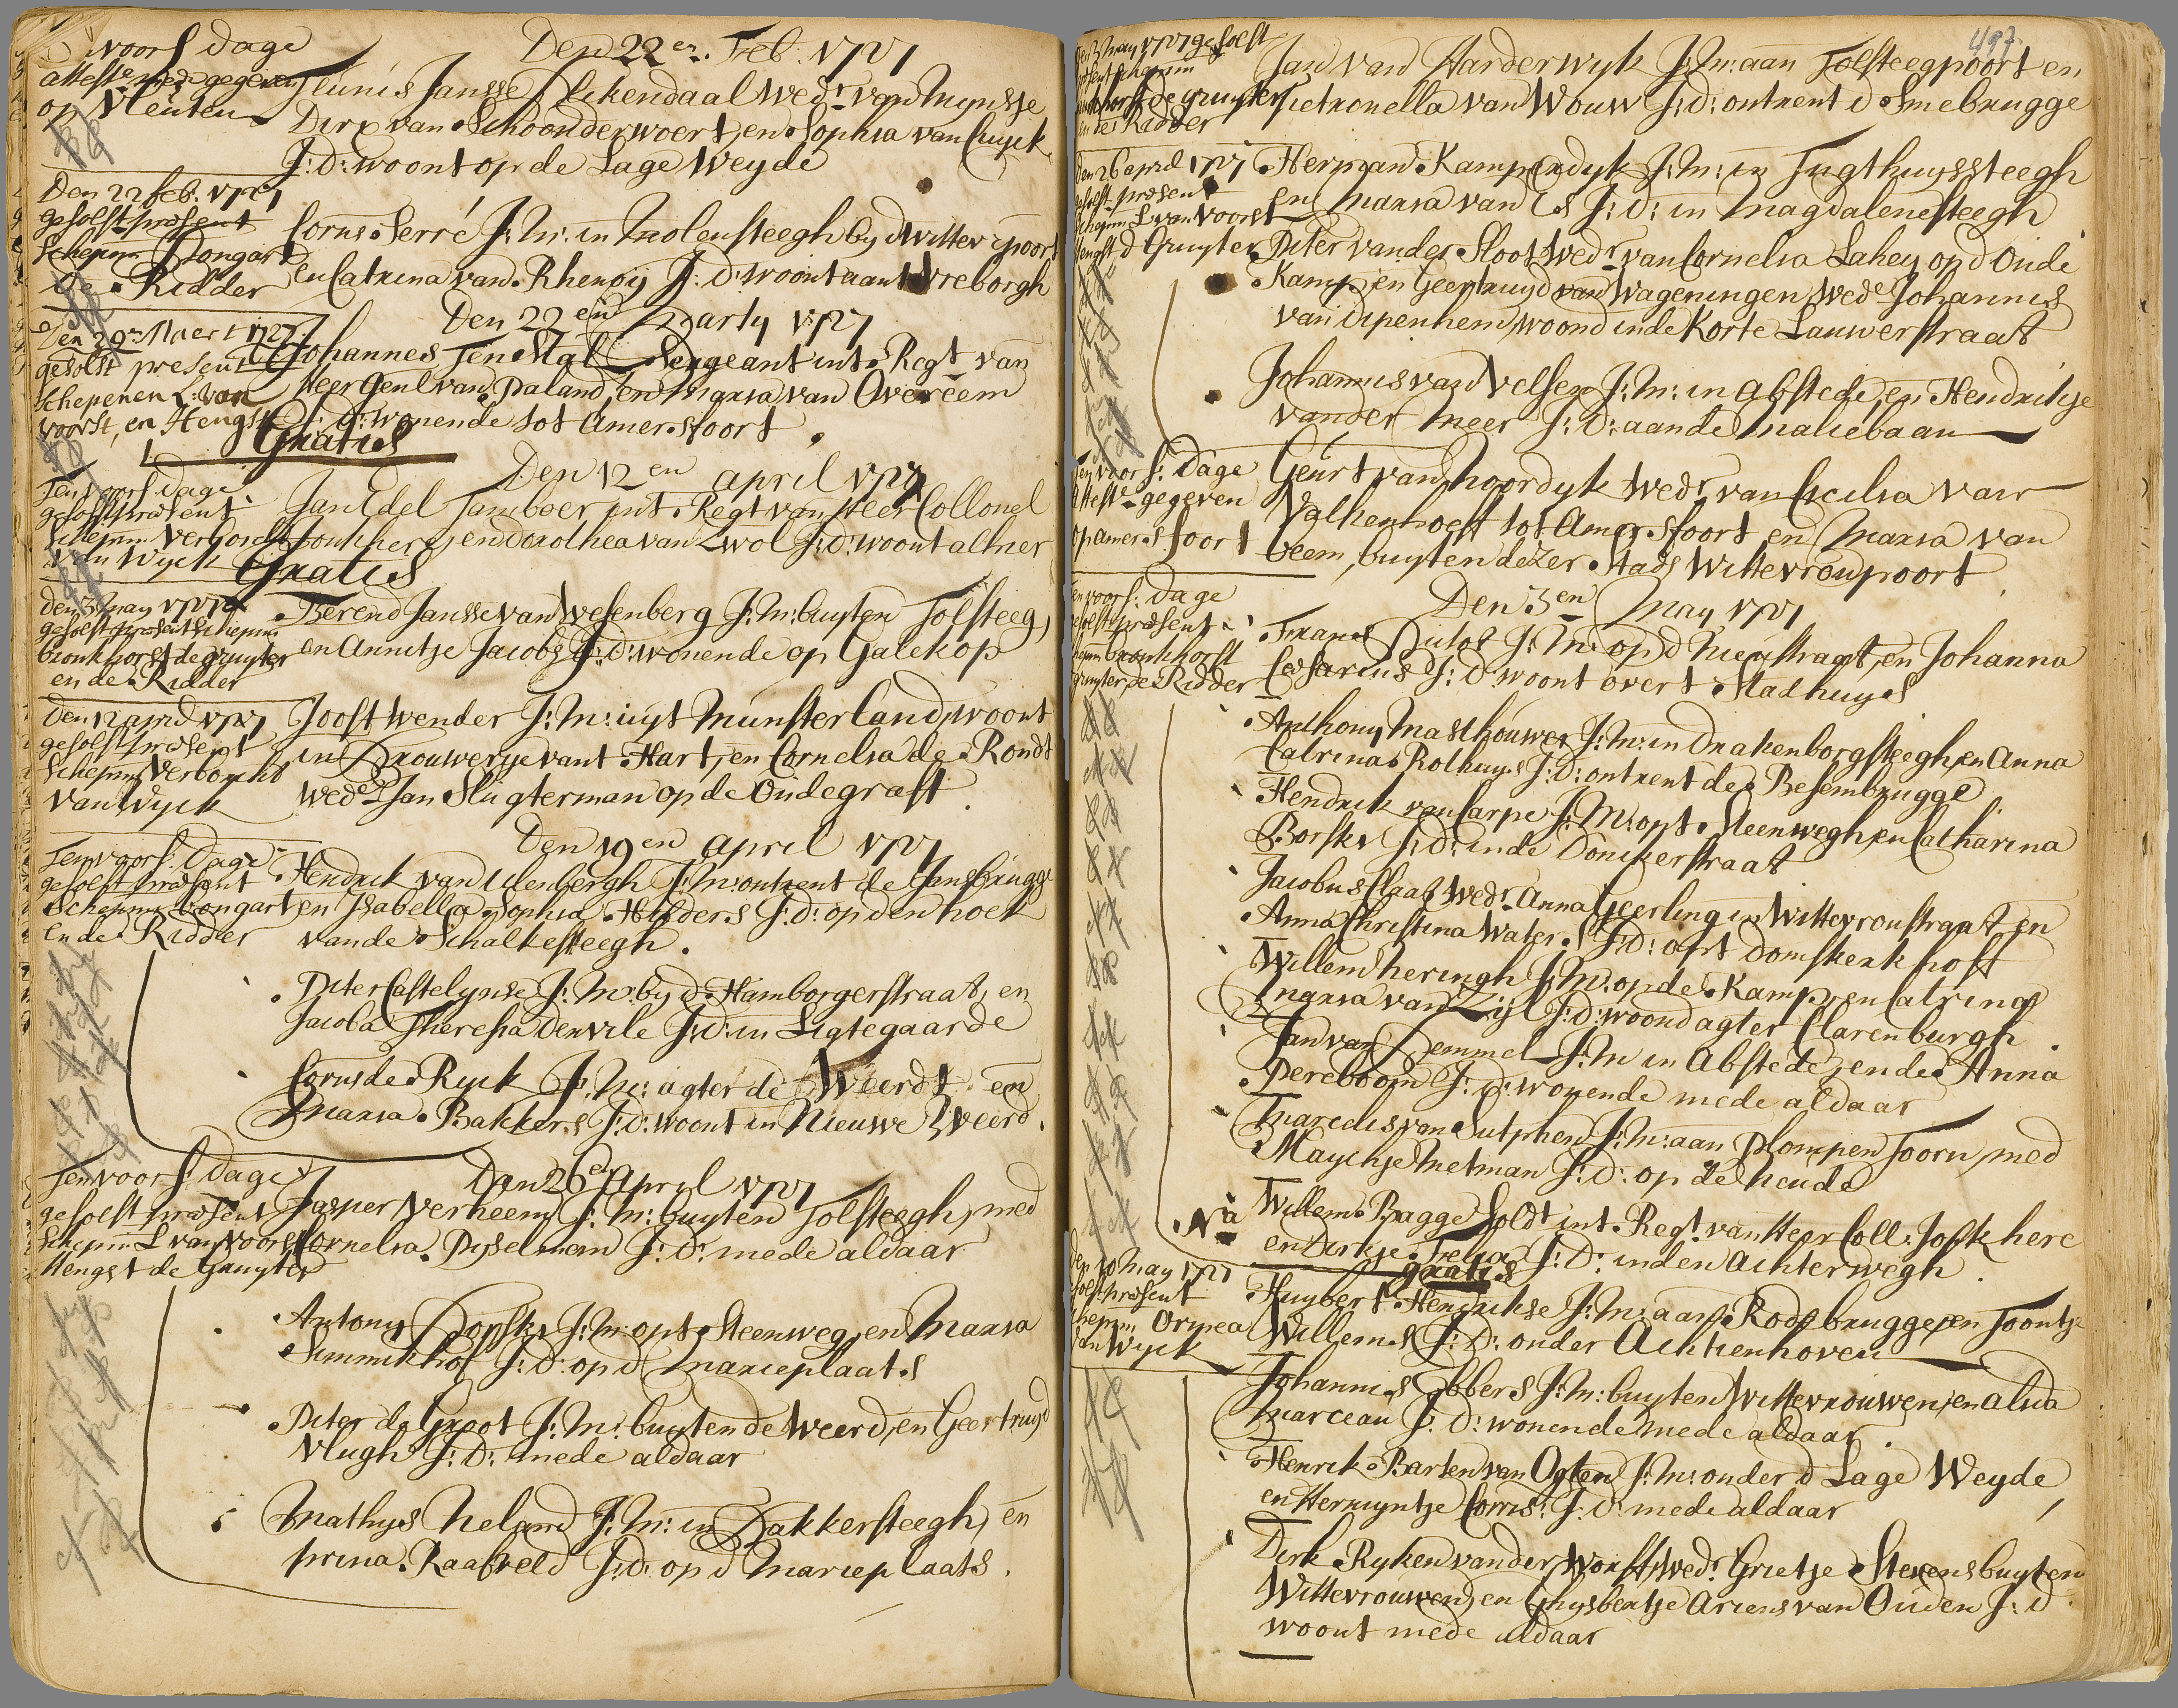 voors dage
atteste mede gegeven
op Vleuten
Den 22en. Feb: 1727
Teunis Jansse Ekendaal Wedr. van Nynsje
Dirx van Schoonderwoert, en Sophia van Cuyck
J: D: woont op de Lage Weyde
Den 22 feb. 1727
gesolst præsent
Schepnn Bongart
de Ridder
Corns. Serré J: M: in Molensteegh by d Witte poort
en Catrina van Rhenoy J: D: woont aant Vreborgh
Den 22en Marty 1727
Den 29en Maert 1727
gesolst present
Schepenen L: van
voorst, en Hengst
Johannes Ten Stal Sergeant int Regt van
Heer Genl van Paland, en Maria van Overeem
J: D: wonende tot Amersfoort
Gratis
Den 12en april 1727
Ten voors dage
gesolst præsent
Schepnn Verborcht
v: du Wyck
Jan Edel Tamboer int Regt van Heer Collonel
Jonkhere, en Dorothea van Zwol J: D: woont alhier
Gratis
den 3 may 1727
gesolst præsent Schepnn
bronkhorst de gruyter
en de Ridder
Berend Jansse van Wesenberg J: M: buyten Tolsteeg,
en Annitje Jacobs J: D: wonende op Galekop
den 12 april 1727
gesolst præsent
Schepnn Verborcht
van Wyck
Joost wender J: M: uyt Munsterland, woont
in Brouwerye vant Hart, en Cornelia de Rondt
Wede Jan Slugterman op de Oudegraft
Den 19en april 1727
Ten voors: dage
gesolst præsent
Schepnn bongart
en de Ridder
Hendrik van Ulenbergh J: M: ontrent de Gansbrugge
en Isabella Sophia Hilders J: D: op den hoek
vande Schalkesteegh.
Piter Castelynse J: M: by d Hamborgerstraat, en
Jacoba Theresia Denvile J: D: in Ligtegaarde
Corns de Ryck J: M: agter de Weerdt en
Maria Bakkers J: D: woont in Nieuwe Weerd.
Den 26en April 1727
Ten voors dage
gesolst præsent
Schepnn L van Voorst
Hengst de Gruyter
Jasper Verheem J: M: buyten Tolsteegh, med
Cornelia Dyselman J: D: mede aldaar
Antony Dopske J: M: opt Steenweg, en Maria
Simmikhof J: D: op d Marieplaats
Piter de Groot J: M: buyten de Weerd, en Geertruyd
Vlugh J: D: mede aldaar
Mathys Neland J: M: in Bakkersteegh, en
Prina Raafveld J: D: op d Marieplaats.
497
3 may 1727 gesolst
præsent schepnn
bronkhorst de gruyter
en de Ridder
Jan van Harderwyk J: M: aan Tolsteegpoort en
Pietronella van Wouw J: D: ontrent d Smebrugge
den 26 april 1727
gesolst præsent
schepnn L van Voorst
Hengst, d Gruyter
Herman Kampendyk J: M: in Tugthuyssteegh
en Maria van Es J: D: in Magdalenesteegh
Piter vander Sloot Wedr van Cornelia Lahey op d Oude
Kamp, en Geertruyd van Wageningen Wede Johannis
van Dipenhem, woond inde Korte Lauwerstraat
Johannis van Velsen J: M: in Abstede, en Hendrikje
vander Meer J: D: aande Maliebaan
Ten voors: dage
atteste gegeven
op amersfoort
Geurt van Noordyk Wedr van Cicilia van
Valkenhoeft tot Amersfoort en Maria van
Veem, buyten dezer Stads Wittevroupoort
Den 3en May 1727
Ten voors: dage
gesolst præsent
schepnn bronkhorst
gruyter de Ridder
Frans Dutos J: M: op d Nieustraat, en Johanna
Cesarius J: D: woont overt Stadhuys
Anthony Masthouwer J: M: in Drakenborgsteegh, en Anna
Catrina Rolhuys J: D: ontrent de Besembrugge
Hendrik van Carpe J: M: opt Steenwegh, en Catharina
Borske J: D: inde Donckerstraat
Jacobus Claas Wedr Anna Geerling in Wittevroustraat en
Anna Christina Waters J: D: opt Domskerkhoff
Willem heringh J: M: op de Kamp, en Catrina
Maria van Zijl J: D: woond agter Clarenburgh
Jan van Bemmel J: M in Abstede, ende Anna
Pereboom J: D: wonende mede aldaar
Marcelis van Sutphen J: M: aan Plompen Toorn, med
Mayche Metman J: D: op de Neude
Na
Willem Bagge Soldt int Regt van Heer Coll: Jonkhere
en Dirkje Trelia J: D: inden Achterwegh
gratis
den 10 May 1727
gesolst præsent
schepnn Ormea
van Wyck
Huybert Hendrikse J: M: aan Rodebrugge, en Toontje
Willems J: D: onder Achtienhoven
Johannis Ebbers J: M: buyten Wittevrouwen, en alida
Marceau J: D: wonende mede aldaar
Henrik Barten van Ogten J: M: onder d Lage Weyde
en Hermyntje Corns: J: D: mede aldaar
Dirk Ryken vander Worff, Wedr Grietje Stevens buyten
Wittevrouwen, en Ghysbertje Ariens van Ouden J: d
woont mede aldaar